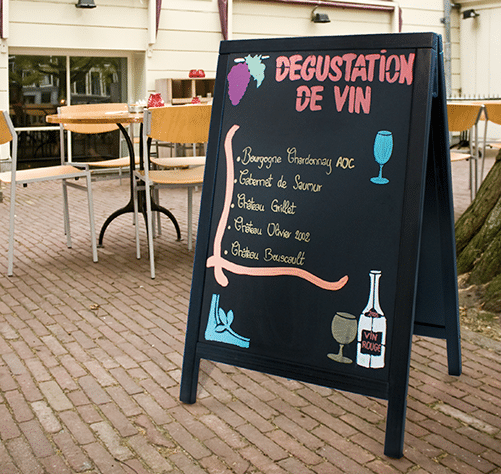 DEGUSTATION
DE VIN
Bourgogne Chardonnay AOC
Cabernet de Saumur
Château Grillet
Château Olivier 2002
Château Bouscault
VIN
ROUGE